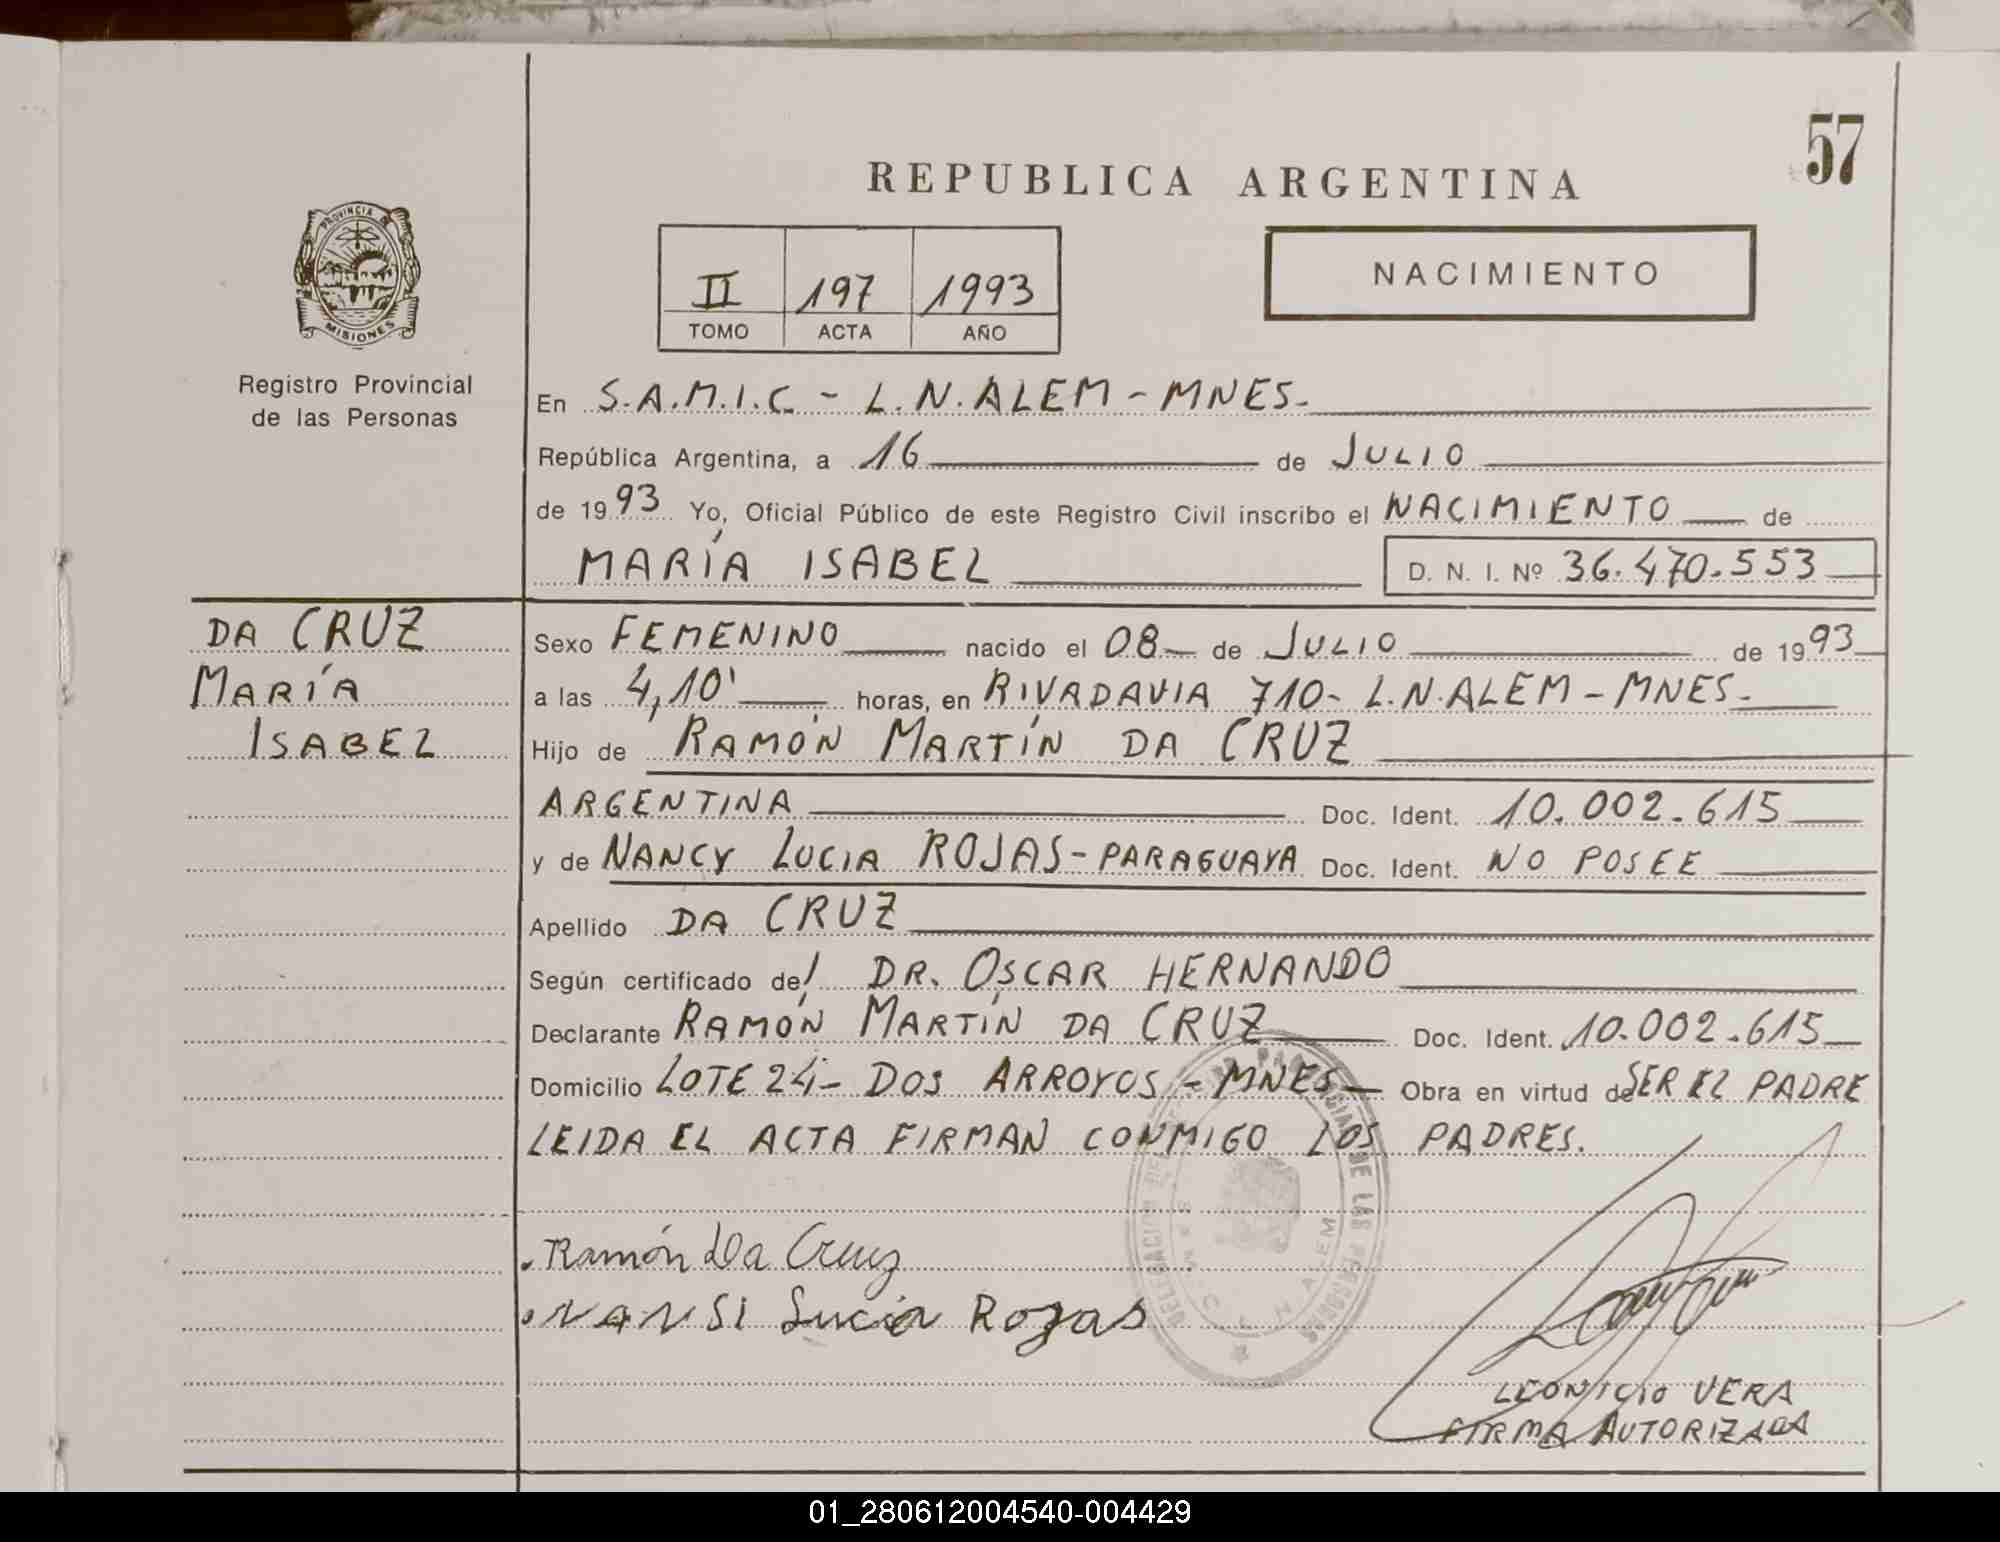 57
REPUBLICA ARGENTINA
PROVINCIA DE
MISIONES
Registro Provincial
de las Personas
II 197 1993
TOMO ACTA AÑO
NACIMIENTO
En S.A.M.I.C. - L.N.ALEM - MNES.
República Argentina, a 16 de JULIO
de 1993 Yo, Oficial Público de este Registro Civil inscribo el NACIMIENTO de
MARÍA ISABEL D. N. I. Nº 36.470.553
DA CRUZ
MARÍA
ISABEL
Sexo FEMENINO nacido el 08 de JULIO de 1993
a las 4,10' horas, en RIVADAVIA 710- L.N.ALEM - MNES.
Hijo de RAMÓN MARTÍN DA CRUZ
ARGENTINA Doc. Ident. 10.002.615
y de NANCY LUCIA ROJAS - PARAGUAYA Doc. Ident. NO POSEE
Apellido DA CRUZ
Según certificado del DR. OSCAR HERNANDO
Declarante RAMÓN MARTÍN DA CRUZ Doc. Ident. 10.002.615
Domicilio LOTE 24- DOS ARROYOS - MNES Obra en virtud de SER EL PADRE
LEIDA EL ACTA FIRMAN CONMIGO LOS PADRES.
Ramón Da Cruz
NANSI Lucia Rojas
DE LAS PERSONAS
ALEM
LEONICIO VERA
FIRMA AUTORIZADA
01_280612004540-004429